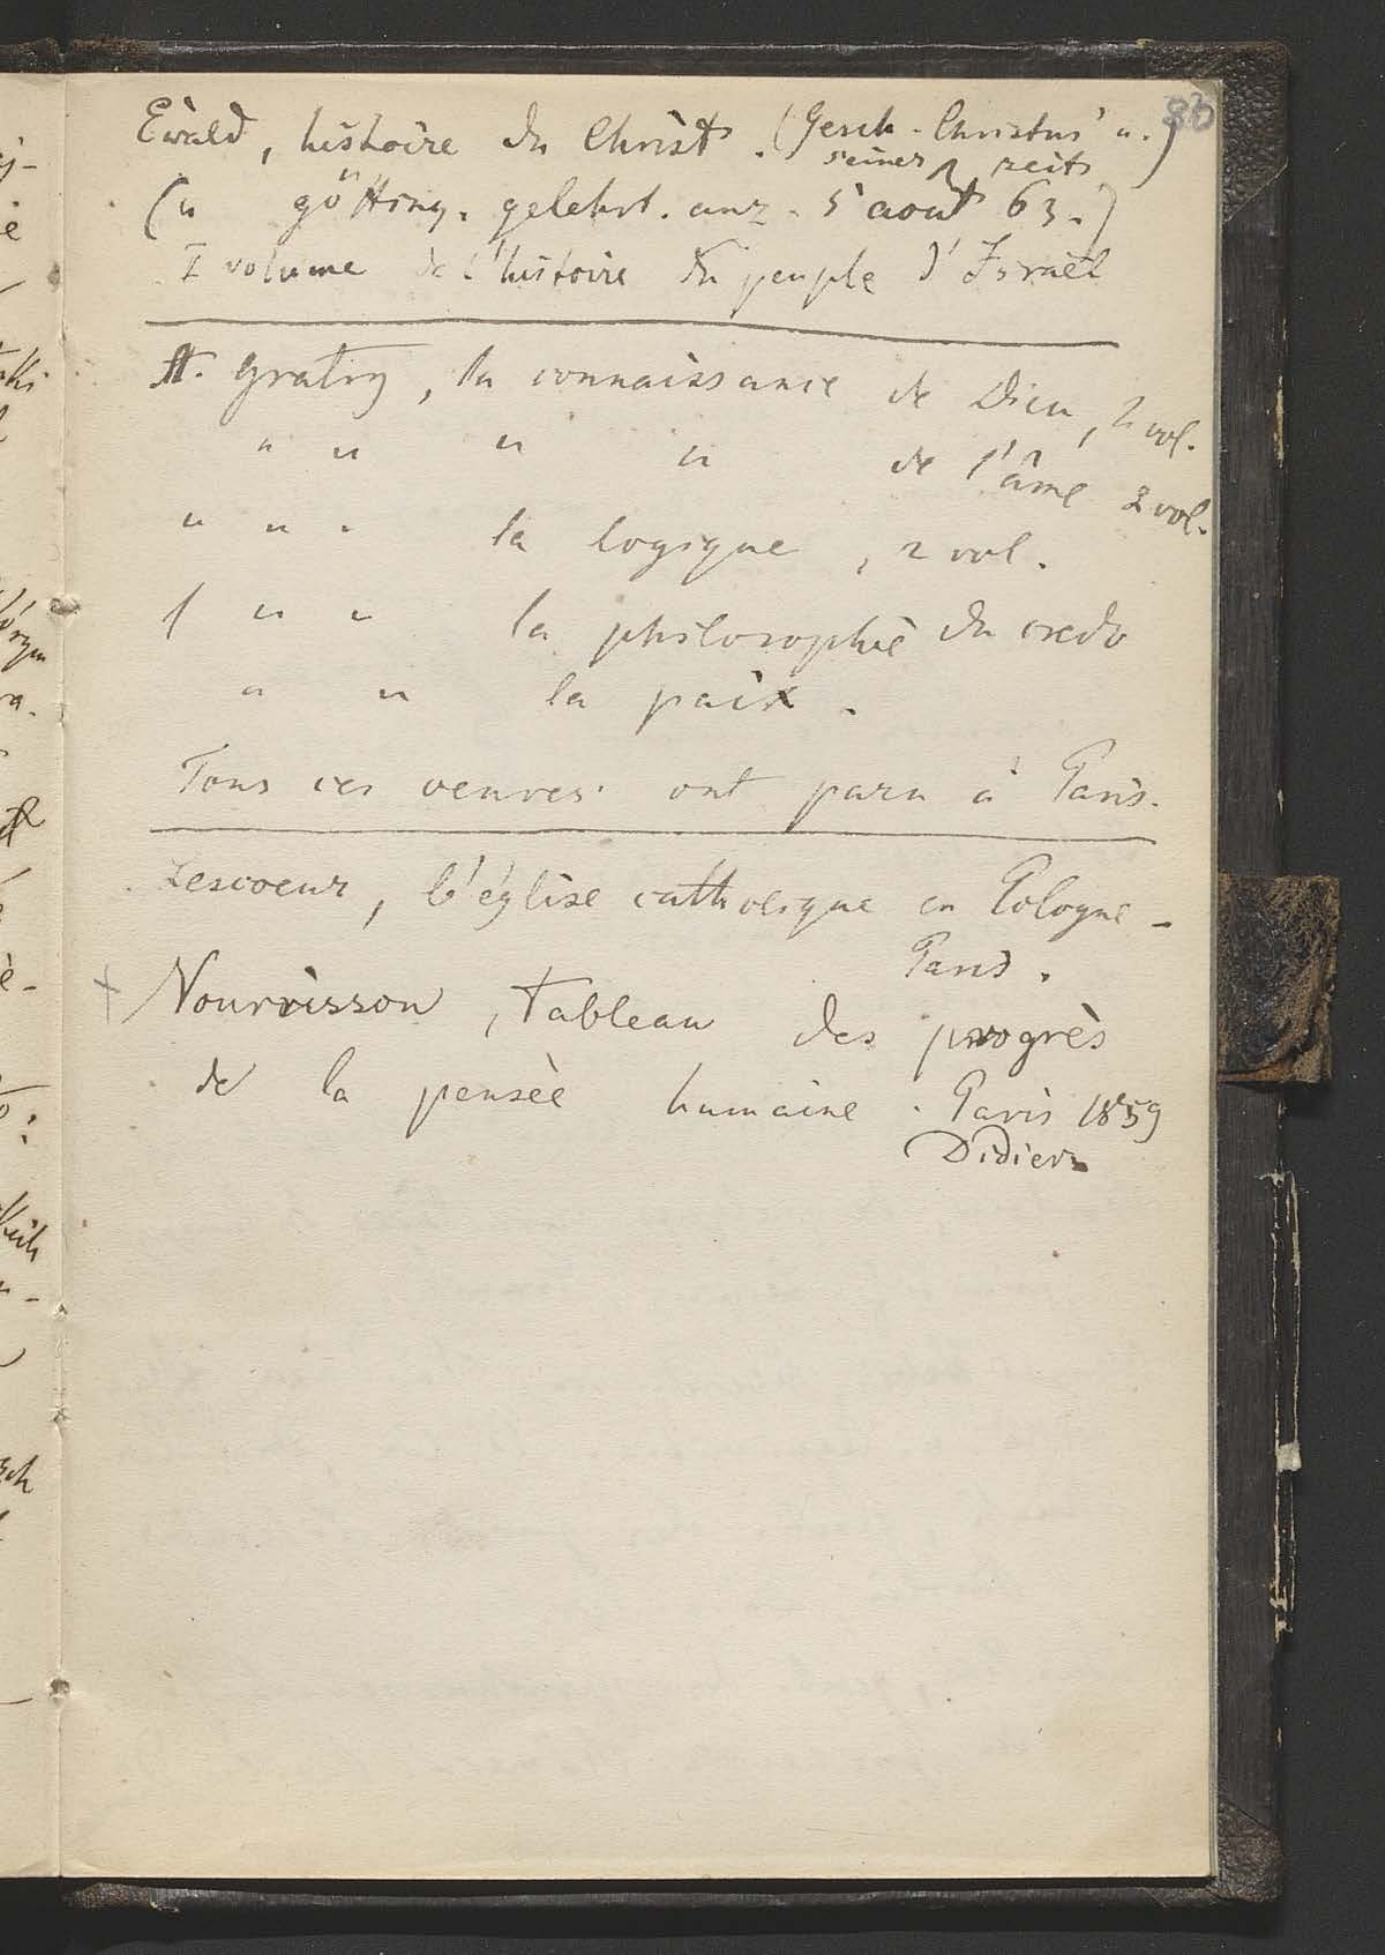 86
Ewald, histoire du Christ. (Gesch. Christus' u.)
seiner zeit
(u götting. gelehrt. anz. 5 aout 63.)
I volume de l'histoire du peuple d'Israël
A. Gratry, la connaissance de Dieu, 2 vol.
" " " " de l'âme 2 vol.
" " " la logique, 2 vol.
" " la philosophie du credo
" " la paix.
Tous ces oeuvres ont paru à Paris.
Lescoeur, l'église catholique en Pologne -
Paris.
+ Nourrisson, tableau des progrès
de la pensée humaine. Paris 1859
Didier